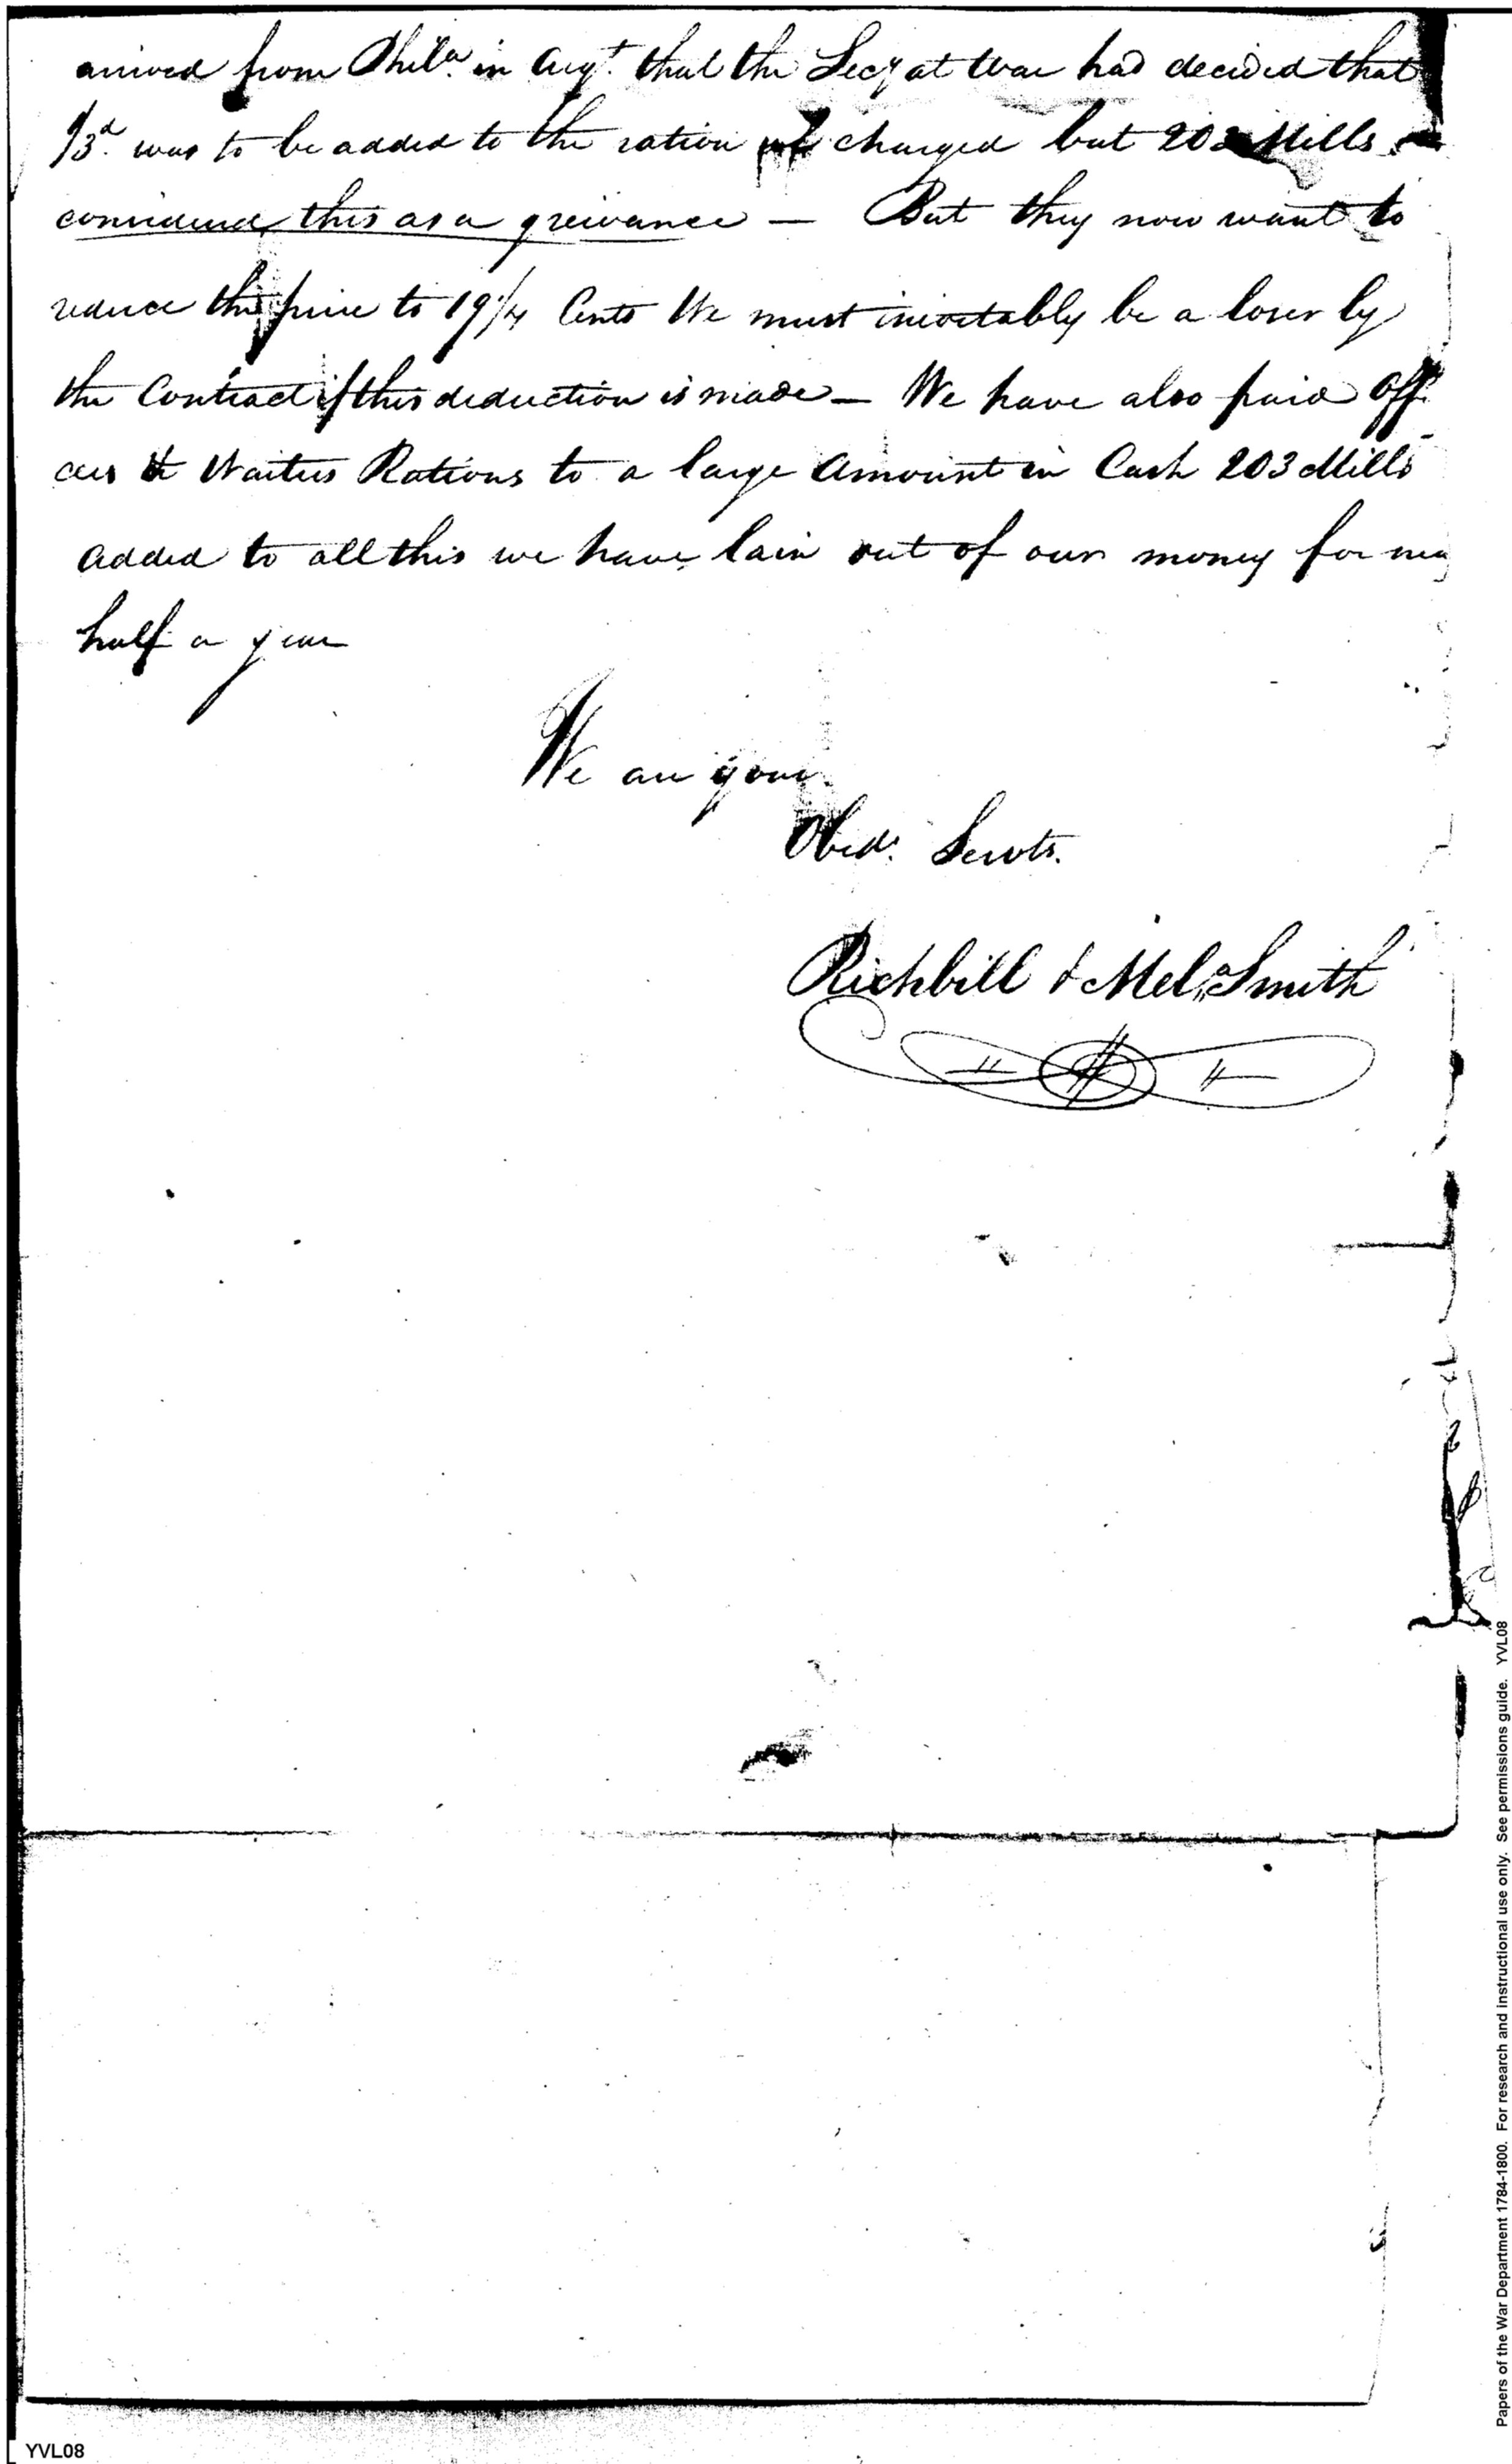 arrived from Phila. in Augt. that the Secy at War had decided that
1/3d. was to be added to the ration charged but 203 Mills
considered this as a greivance — But they now want to
reduce the price to 19 1/4 Cents We must inevitably be a loser by
the Contract if this deduction is made — We have also paid Offi
cers & Waiters Rations to a large Amount in Cash 203 Mills
added to all this we have lain out of our money for
half a year
We are your
Obedt. Servts.
Richbill & Mel. Smith
Papers of the War Department 1784-1800. For research and instructional use only. See permissions guide. YVL08
YVL08